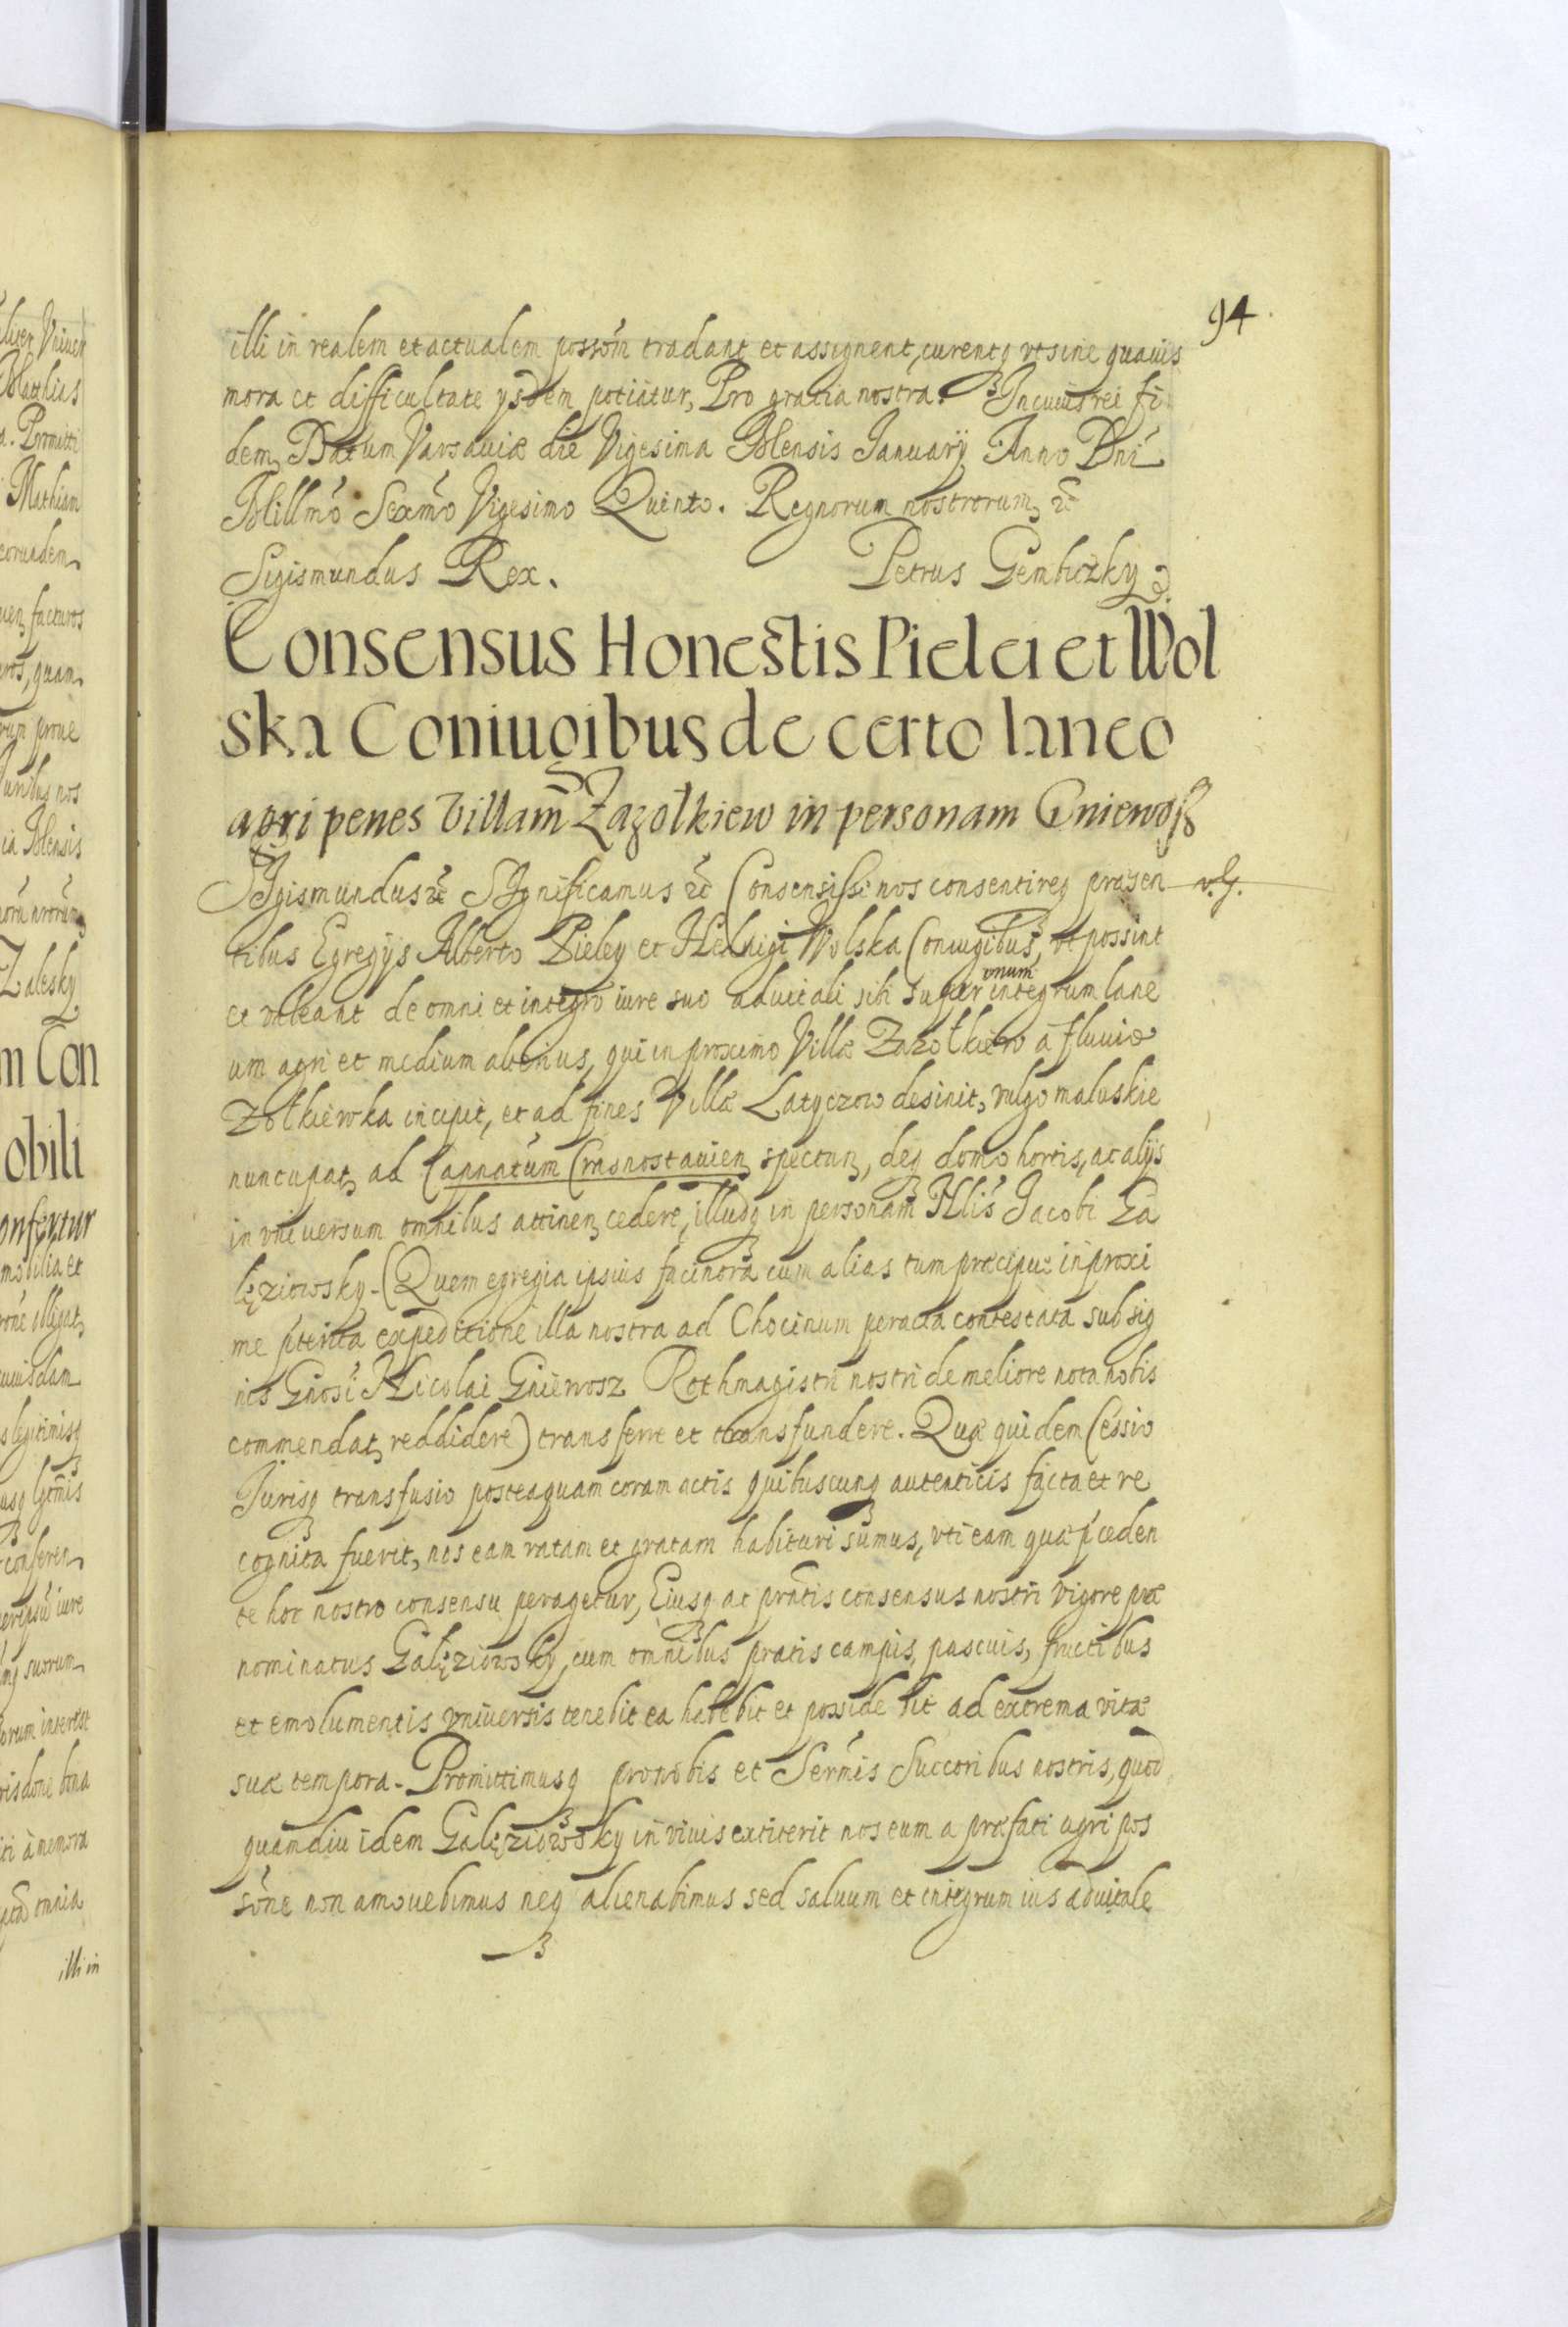 94
illi in realem et actualem possom̃ tradant et assignent, curentq vt sine quauis
mora et difficultate ysdem potiatur, Pro gratia nostra. In cuius rei fi
dem, Datum Varsauiæ die Vigesima Mensis Januarÿ Anno Dni
Millmo Sexmo Vigesimo Quinto. Regnorum nostrorum, &c
Sigismundus Rex. Petrus Gembiczky
Consensus Honestis Pielei et Wol
ska Coniugibus de certo laneo
agri penes Villam Zazolkiew in personam Gniewosz
SIgismundus &c SIgnificamus &c Consensisse nos consentireq præsen
tibus Egregÿs Alberto Pieley et Heduigi Wolska Coniugibus, vt possint
et valeant de omni et integro iure suo aduitali sibi super vnum integrum lane
um agri et medium alterius, qui in proximo Villæ Zazołkiew a fluuio
Zołkiewka incipit, et ad fines Villæ Latyczow desinit, vulgo maluskie
nuncupat, ad Capnatum Crasnostauien spectan, deq domo hortis, ac alÿs
in vniuersum omnibus attinen, cedere, illudq in personam Nlis Jacobi Ga
lęziowsky. (Quem egregia ipsius facinora cum alias tum præcipue in proxi
me pterita expeditione illa nostra ad Chocinum peracta contestata sub sig
nis Gnosi Nicolai Gniewosz Rothmagistri nostri de meliore nota nobis
commendat, reddidere) transferre et transfundere. Quæ quidem Cessio
Jurisq transfusio posteaquam coram actis quibuscunq autenticis facta et re
cognita fuerit, nos eam ratam et gratam habituri sumus, vti eam quæ pceden
te hoc nostro consensu peragetur, Eiusq ac prntis consensus nostri vigore præ
nominatus Galęziowsky, cum omnibus pratis campis, pascuis, fructibus
et emolumentis vniuersis tenebit ea habebit et possidebit ad extrema vitæ
suæ tempora. Promittimusq pro nobis et Sermis Succoribus nostris, quod
quamdiu idem Galęziowsky in viuis extiterit nos eum a præfati agri pos
sone non amouebimus neq alienabimus sed saluum et integrum ius aduitale